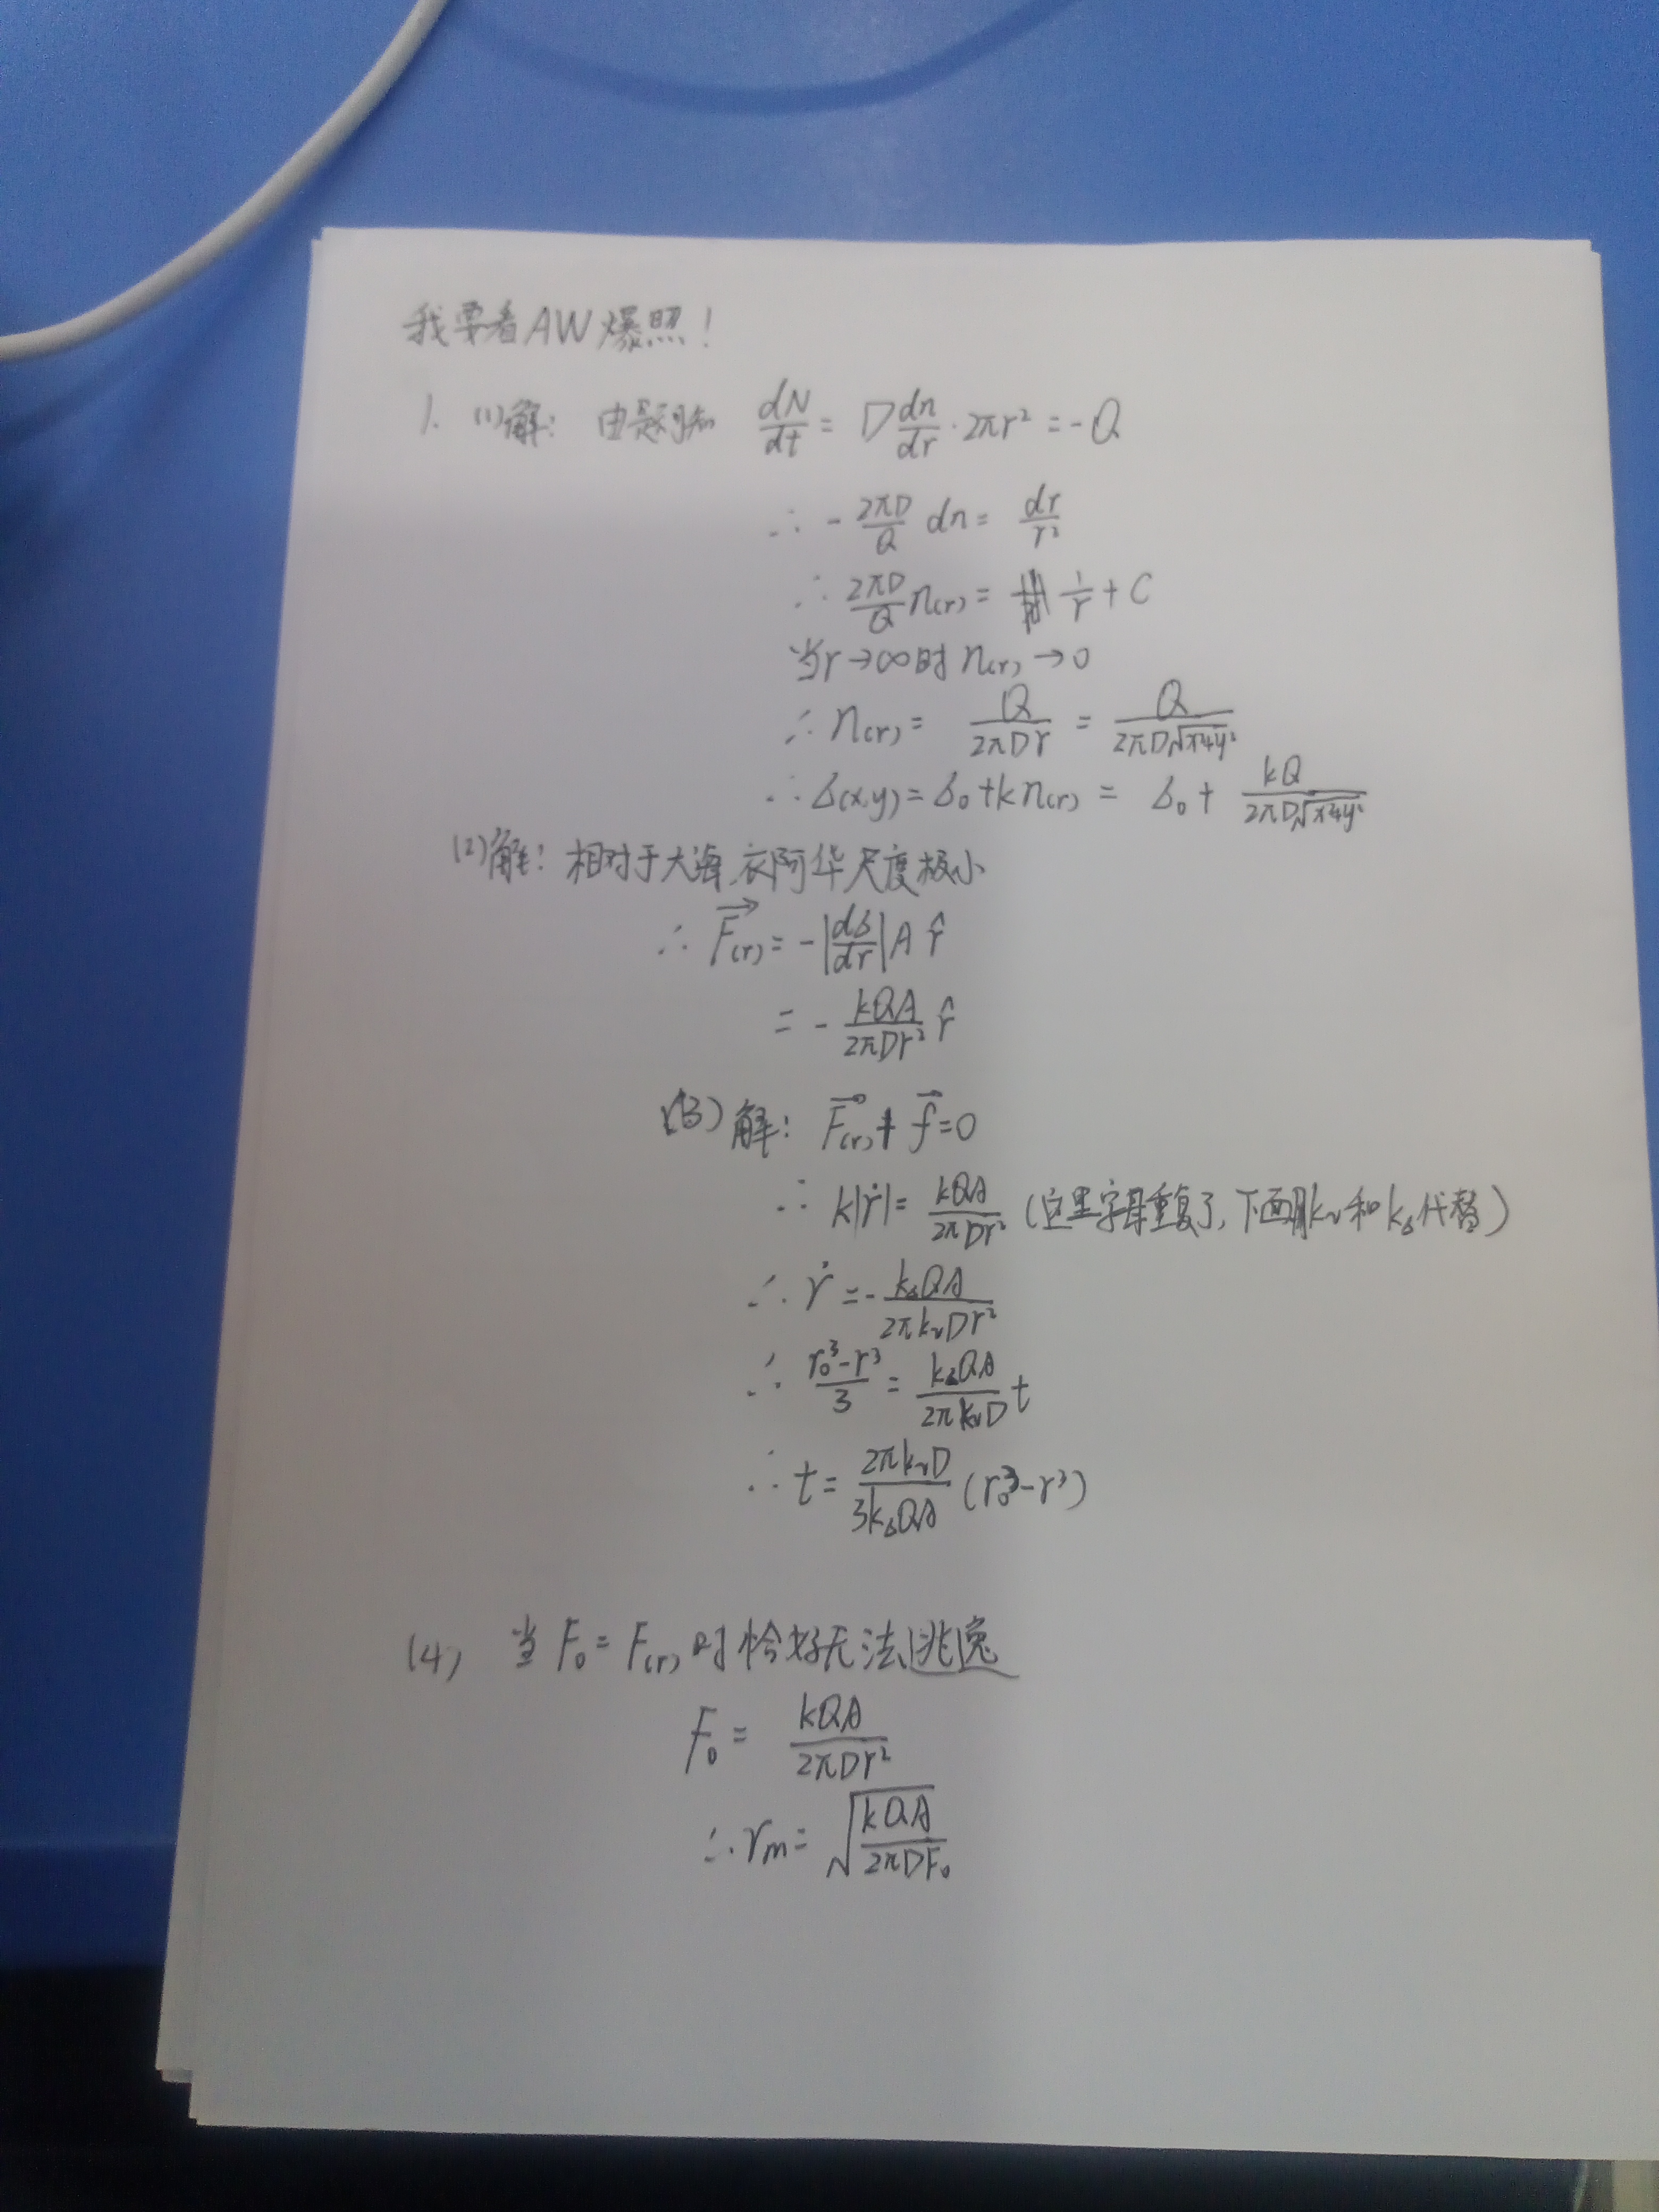 我要看AW爆照!
1. (1)解: 由题可知 dN/dt = D dn/dr · 2πr² = -Q
∴ - 2πD/Q dn = dr/r²
∴ 2πD/Q n(r) = 1/r + C
当r→∞时 n(r)→0
∴ n(r) = Q/2πDr = Q/2πD√x²+y²
∴ δ(x,y) = δ₀+kn(r) = δ₀ + kQ/2πD√x²+y²
(2)解: 相对于大海,衣阿华尺度极小
∴ F⃗(r) = -|dδ/dr| A r̂
= - kQA/2πDr² r̂
(3)解: F⃗(r) + f⃗ = 0
∴ k|ṙ| = kQA/2πDr² (这里字母重复了,下面用kᵥ和kδ代替)
∴ ṙ = - kδQA/2πkᵥDr²
∴ r₀³-r³/3 = kδQA/2πkᵥD t
∴ t = 2πkᵥD/3kδQA (r₀³-r³)
(4) 当F₀ = F(r)时恰好无法逃逸
F₀ = kQA/2πDr²
∴ rm = √kQA/2πDF₀